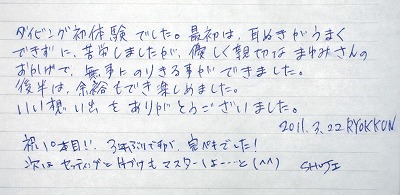 ダイビング初体験でした。最初は、耳ぬきがうまく
できずに、苦労しましたが、優しく親切なまゆみさんの
おかげで、無事にのりきる事ができました。
後半は、余裕もでき楽しめました。
いい想い出をありがとうございました。
2011.3.22 RYOKKUN
祝10本目!! 3年ぶりですが、完ペキでした!
次はセッティングと片づけもマスターしよ…と(^^) SHUJI